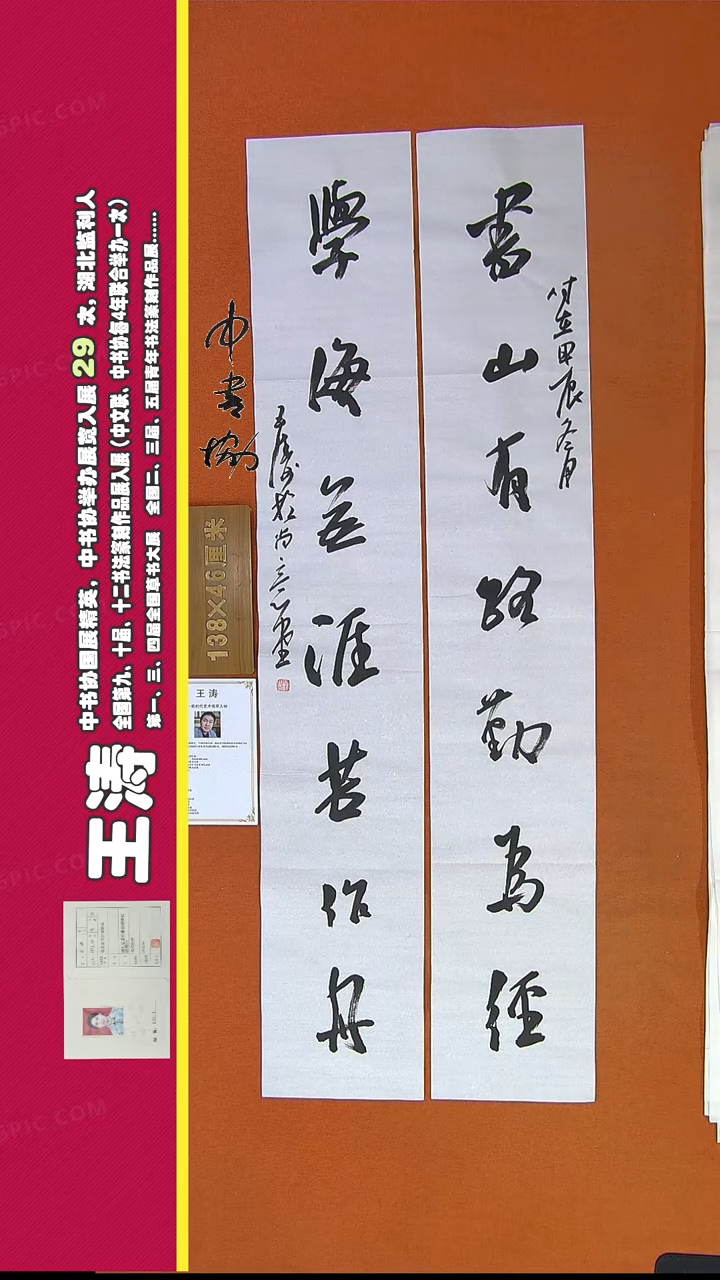 書山有路勤為徑
時在甲辰冬月
學海無涯苦作舟
王濤於尚意堂
中書協
138×46厘米
王涛
中书协国展精英，中书协举办展览入展 29 次，湖北监利人
全国第九、十届、十二书法篆刻作品展入展（中文联、中书协每4年联合举办一次）
第一、三、四届全国草书大展　全国二、三届、五届青年书法篆刻作品展......
王涛